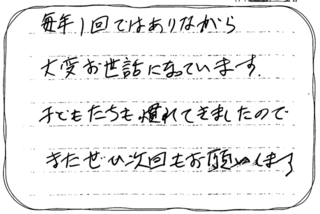 毎年1回ではありながら
大変お世話になっています.
子どもたちも慣れてきましたので
またぜひ次回もお願いします